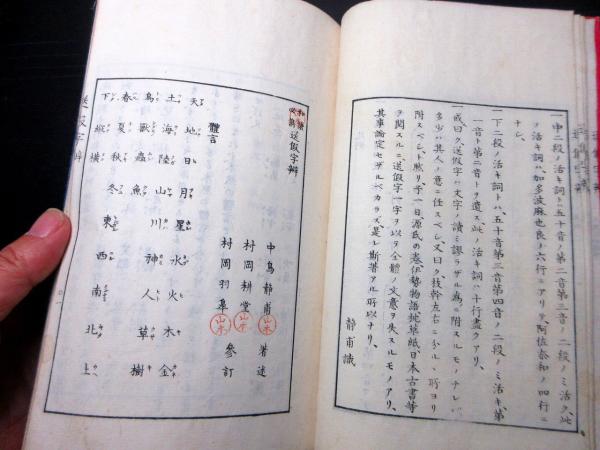 一中二段ノ活キ詞トハ五十音ノ第二音第三音ノ二段ノミ活ク、此
ノ活キ詞ハ、加多波麻也良ノ六行ニアリテ、阿佐奈和ノ四行ニ
ナシ、
一下二段ノ活キ詞トハ、五十音第三音第四音ノ二段ノミ活キ、第
一音ト第二音トヲ遺ス、此ノ活キ詞ハ十行盡クアリ、
一或曰ク、送假字ハ文字ノ讀ミ謬ラザル為ニ附スルモノナレバ、
多少ハ其人ノ意ニ任スベシ、又曰ク枝幹左右ニ分ルヽ所ヨリ
附スベシト、然リ、予一日、源氏の巻伊勢物語枕草紙日本古書等
ヲ閲スルニ、送假字一字ヲ以テ全體ノ文意ヲ失スルモノアリ、
其事論定セザルベカラズ、是レ斯著アル所以ナリ、
靜甫識
送假字辨
中島靜甫 著述
村岡耕堂
村岡羽皐 參訂
體言
天 地 日 月 星 水 火 木 金
土 海 陸 山 川 神 人 草 樹
鳥 獸 蟲 魚
春 夏 秋 冬 東 西 南 北 上
下 縱 橫
送假字辨